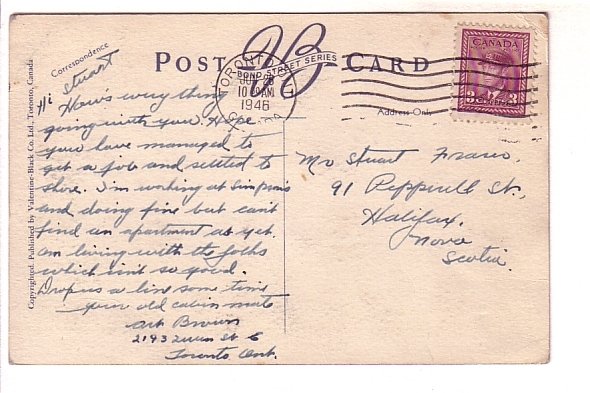 Correspondence
POST CARD
VB
BOND STREET SERIES
TORONTO
10 30 AM
1946
CANADA
CANADA
3 CENTS 3
Address Only
Copyrighted. Published by Valentine-Black Co. Ltd., Toronto, Canada
Hi Stuart
How's everything
going with you. Hope
you have managed to
get a job and settled to
shore. I'm working at Simpsons
and doing fine but can't
find an apartment as yet.
am living with the folks
which isnt so good.
Drop us a line some time
your old cabin mate
Art Brown
2193 Queen St E
Toronto Ont.
Mr Stuart Fraser,
91 Pepperell St,
Halifax,
Nova
Scotia.